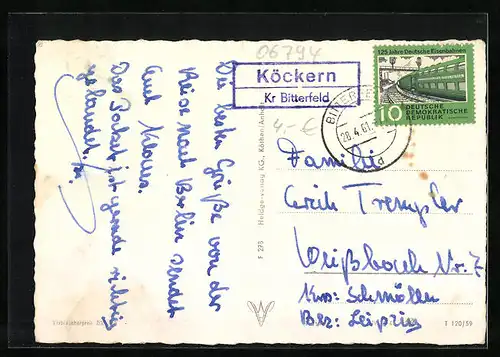 06794
Köckern
Kr Bitterfeld
125 Jahre Deutsche Eisenbahnen
10
DEUTSCHE
DEMOKRATISCHE
REPUBLIK
28.4.61
d
4,- €
Die besten Grüße von der
Reise nach Berlin sendet
Euch Klaus.
Das Paket ist gerade richtig
gelandet.
F 276 Heldge-verlag KG., Köthen/Anhalt
Familie
Erich Trempler
Weißbach Nr. 7
Krs: Schmölln
Bez: Leipzig
T 120/59